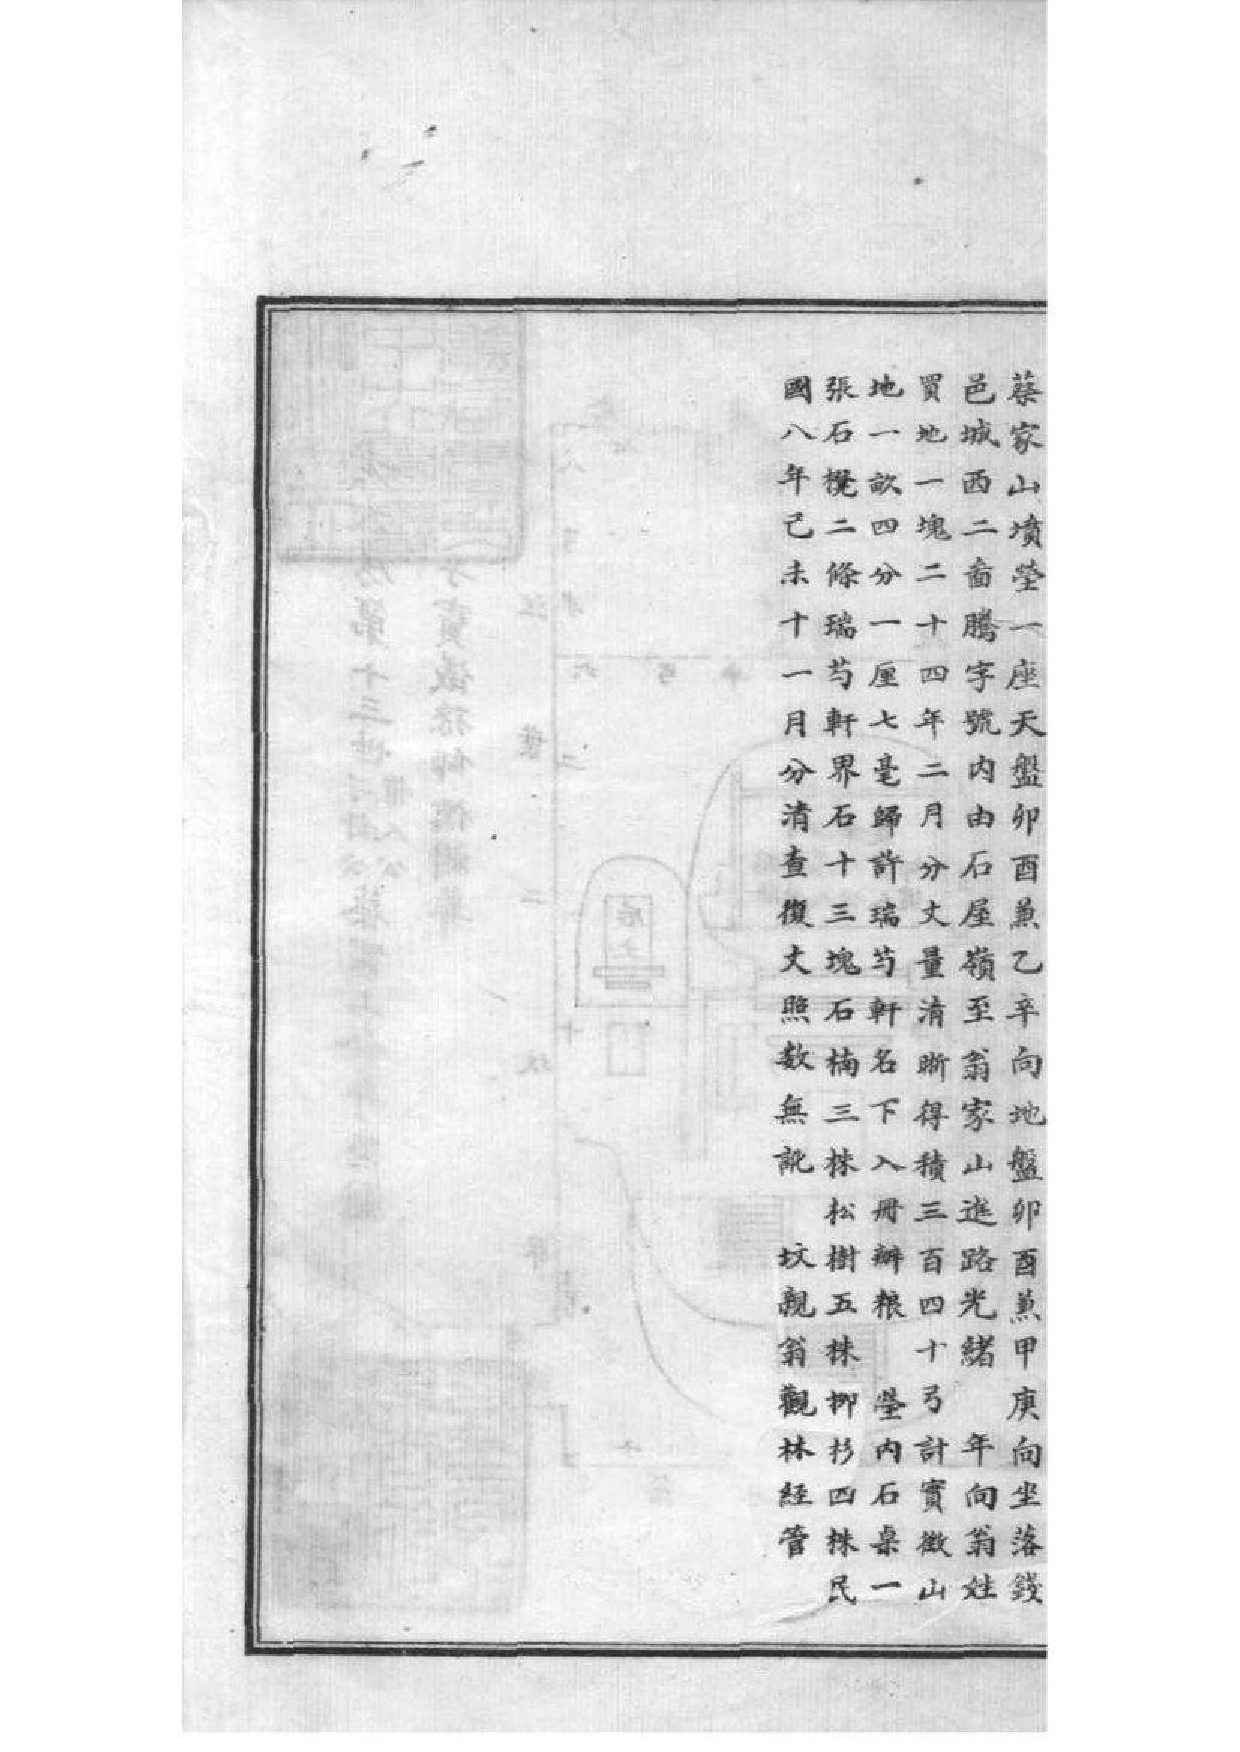 蔡家山墳塋一座天盤卯酉兼乙辛向地盤卯酉兼甲庚向坐落錢
邑城西二啚騰字號內由石屋嶺至翁家山進路光緒　年向翁姓
買地一塊二十四年二月分丈量清晰得積三百四十弓計實徵山
地一畝四分一厘七毫歸許瑞芍軒名下入冊辦粮　塋內石桌一
張石櫈二條瑞芍軒界石十三塊石楠三株松樹五株柳杉四株民
國八年己未十一月分清查復丈照数無訛　坟親翁觀林經管